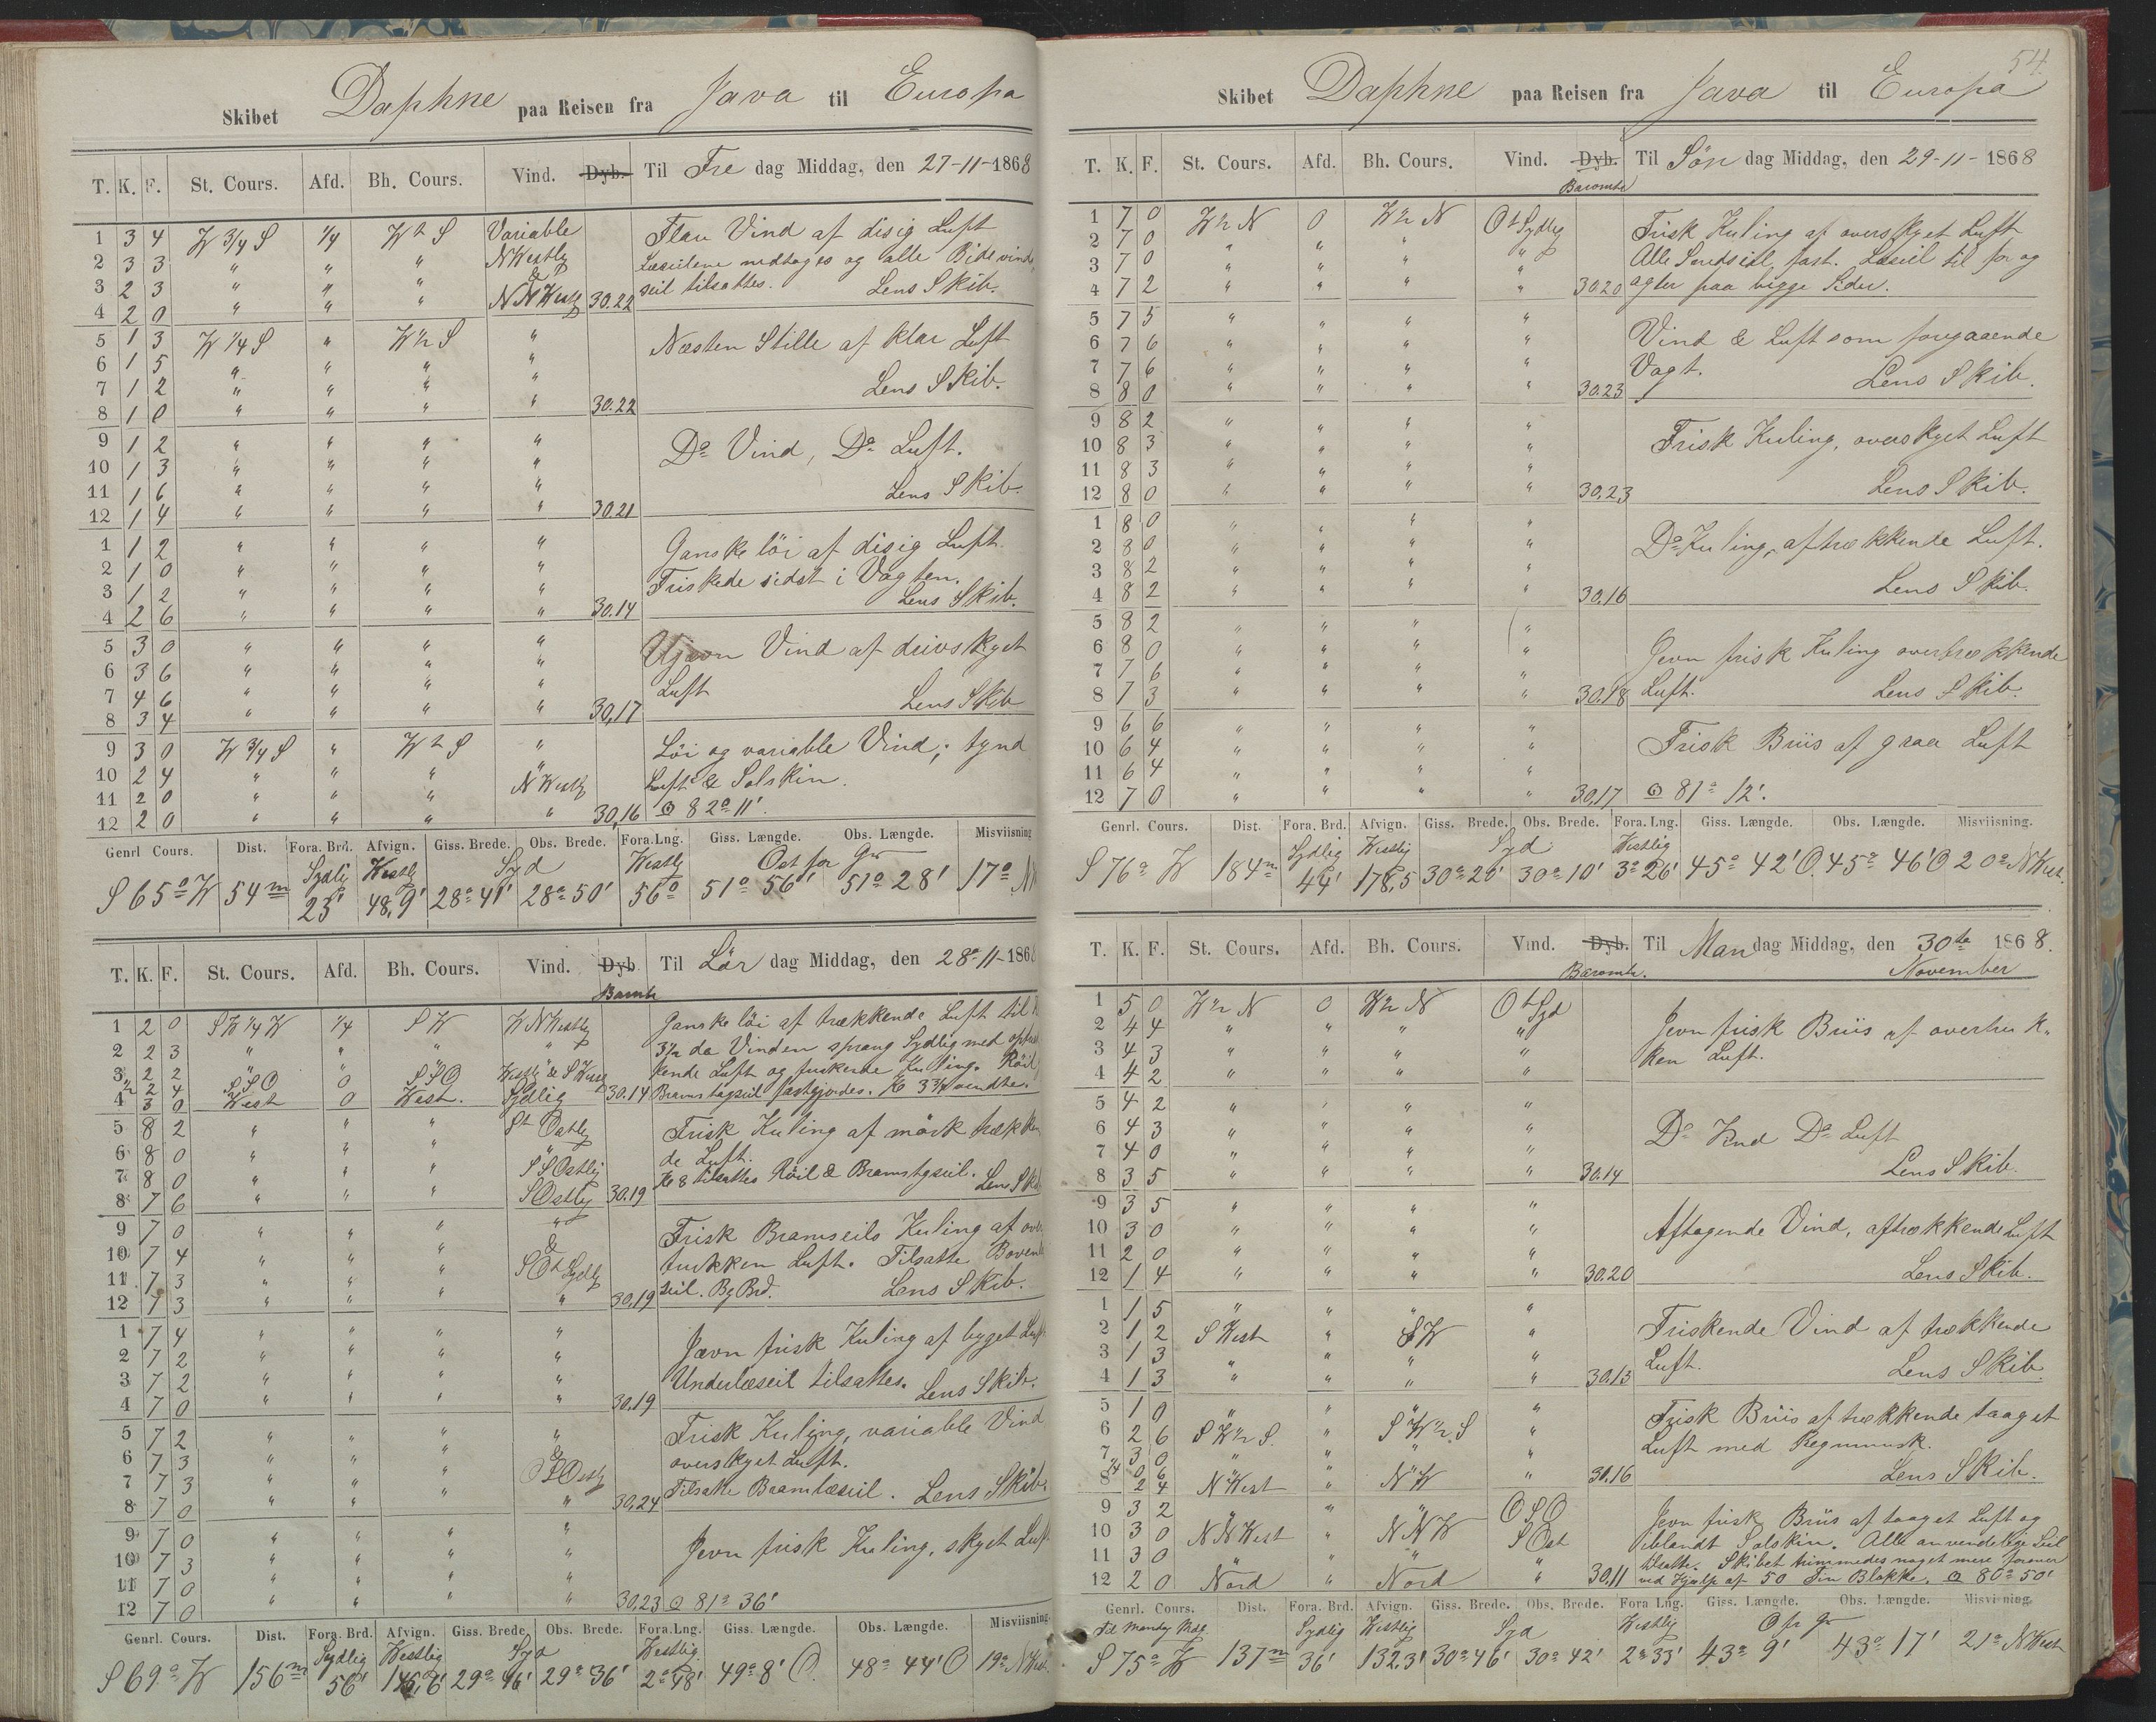 Skibet Daphne paa Reisen fra Java til Europa
T. K. F. St. Cours. Afd. Bh. Cours. Vind. Dyb. Til Fre dag Middag, den 27-11-1868
1 3 4 W 3/4 S 1/4 WtS Variable Flau Vind af disig Luft
2 3 3 " " " N Westly Læseilene nedtoges og alle Bidevinds
3 2 3 " " " & seil tilsattes. Lens Skib.
4 2 0 " " " NNWestly 30.22
5 1 3 W 1/4 S " W 1/2 S " Næsten Stille af klar Luft
6 1 5 " " " "
7 1 2 " " " " Lens Skib.
8 1 0 " " " " 30.22
9 1 2 " " " " Do Vind, Do Luft.
10 1 3 " " " "
11 1 6 " " " " Lens Skib.
12 1 4 " " " " 30.21
1 1 2 " " " " Ganske löi af disig Luft.
2 1 0 " " " " Friskede sidst i Vagten.
3 1 2 " " " " Lens Skib.
4 2 6 " " " " 30.14
5 3 0 " " " " Ujævn Vind af drivskyet
6 3 6 " " " " Luft
7 4 6 " " " " Lens Skib
8 3 4 " " " " 30,17
9 3 0 W 3/4 S " WtS " Löi og variable Vind; tynd
10 2 4 " " " " Luft & Solskin.
11 2 0 " " " N Westly
12 2 0 " " " " 30,16 ⊙ 82° 11'.
Genrl Cours. Dist. Fora. Brd. Afvign. Giss. Brede. Obs. Brede. Fora.Lng. Giss. Længde. Obs. Længde. Misviisning
Sydlig Westlig Syd Westlig Ost for Gr
S 65° W 54m 23' 48,9' 28° 41' 28° 50' 56° 51° 56' 51° 28' 17° N
T. K. F. St. Cours. Afd. Bh. Cours. Vind. Dyb Til Lör dag Middag, den 28-11-186
Baromtr
1 2 0 SW 1/4 W 1/4 SW WNWestly Ganske löi af trækkende Luft til
2 2 3 " " " " 3 1/2 da Vinden sprang Sydlig med
3 2 2 " " " Westly & SWestly kende Luft og friskende Kuling. Röil
1/2 2 4 SSO 0 SSO
4 3 0 West 0 West. Sydlig 30.14 Bramstagseil fastgjordes. Kl 3 3/4 vendte.
5 8 2 " " " St Ostly Frisk Kuling af mörk trækken
6 8 0 " " " " de Luft.
7 8 0 " " " SSOstly Kl 8 tilsattes Röil & Bramstgseil. Lens Sk
8 7 6 " " " SOstly 30.19
9 7 0 " " " " Frisk Bramseils Kuling af over
10 7 4 " " " & trukken Luft. Tilsatte Boven
11 7 3 " " " SOtSydly seil. BgBrd. Lens Skib.
12 7 3 " " " " 30,19
1 7 4 " " " " Jævn frisk Kuling af byget Luft
2 7 2 " " " " Underlæseil tilsattes.
3 7 2 " " " " Lens Skib.
4 7 0 " " " " 30,19
5 7 2 " " " " Frisk Kuling, variable Vind
6 7 3 " " " & overskyet Luft.
7 7 3 " " " OSOstly Tilsatte Bramlæseil. Lens Skib.
8 7 0 " " " " 30,24
9 7 0 " " " " Jevn frisk Kuling, skyet Luft
10 7 3 " " " "
11 7 0 " " " "
12 7 0 " " " " 30,23 ⊙ 81° 36'
Genrl. Cours. Dist. Fora. Brd. Afvign. Giss. Brede. Obs. Brede. Fora.Lng. Giss. Længde. Obs. Længde. Misviisning.
Sydlig Westlig Syd Westlig
S 69° W 156m 56' 29° 46' 29° 36' 2° 48' 49° 8' O. 48° 44' O 19° N West
54.
Skibet Daphne paa Reisen fra Java til Europa
T. K. F. St. Cours. Afd. Bh. Cours. Vind. Dyb. Til Sön dag Middag, den 29-11-1868
Baromtr
1 7 0 W 1/2 N 0 W 1/2 N OtSydly Frisk Kuling af overskyet Luft
2 7 0 " " " " Alle Smedseil fast. Læseil til for og
3 7 0 " " " "
4 7 2 " " " " 30.20 agter paa begge Sider.
5 7 5 " " " " Vind & Luft som foregaaende
6 7 6 " " " " Vagt.
7 7 6 " " " " Lens Skib.
8 8 0 " " " " 30.23
9 8 2 " " " " Frisk Kuling, overskyet Luft
10 8 3 " " " "
11 8 3 " " " "
12 8 0 " " " " 30,23 Lens Skib.
1 8 0 " " " " Do Kuling, aftrækkende Luft.
2 8 0 " " " "
3 8 2 " " " " Lens Skib.
4 8 2 " " " " 30,16
5 8 2 " " " " Jevn frisk Kuling overtrækkende
6 8 0 " " " "
7 7 6 " " " "
8 7 3 " " " " 30,18 Luft. Lens Skib.
9 6 6 " " " " Frisk Briis af graa Luft
10 6 4 " " " "
11 6 4 " " " "
12 7 0 " " " " 30,17 ⊙ 81° 12'.
Genrl. Cours. Dist. Fora. Brd. Afvign. Giss. Brede. Obs. Brede. Fora. Lng. Giss. Længde. Obs. Længde. Misviisning.
Sydlig Westlig Syd Westlig
S 76° W 184m 44' 178,5 30° 20' 30° 10' 3° 26' 45° 42' O 45° 46' O 20° N West.
T. K. F. St. Cours. Afd. Bh. Cours. Vind. Dyb. Til Man dag Middag, den 30te 1868.
Baromtr. November
1 5 0 W 1/2 N 0 W 1/2 N OtSyd Jevn frisk Briis af overtruk-
2 4 4 " " " " ken Luft.
3 4 3 " " " "
4 4 2 " " " "
5 4 2 " " " " Do Vnd Do Luft
6 4 3 " " " "
7 4 0 " " " "
8 3 5 " " " " 30.14 Lens Skib.
9 3 5 " " " " Aftagende Vind, aftrækkende Luft
10 3 0 " " " "
11 2 0 " " " "
12 1 4 " " " " 30.20 Lens Skib.
1 1 5 " " " " Friskende Vind af trækkende
2 1 2 S West " SW " Luft.
3 1 3 " " " "
4 1 3 " " " " 30.13 Lens Skib.
5 1 0 " " " " Frisk Briis af trækkende taaget
6 2 6 SW 1/2 S. " SW 1/2 S " Luft med Regnmusk.
7 3 0 " " " "
1/4 0 6
8 2 4 N West " NW " 30.16 Lens Skib.
9 3 2 " " " OSO Jevn frisk Briis af taaget Luft og
10 3 0 NNWest " NNW SOst iblandt Solskin. Alle anvendelige Seil
11 3 0 " " " tilsatte. Skibet trimmedes noget mere forover
12 2 0 Nord " Nord " 30.11 ved Hjælp af 50 Tin Blokke. ⊙ 80° 50'
Genrl. Cours. Dist. Fora. Brd. Afvign. Giss. Brede. Obs. Brede. Fora Lng. Giss. Længde. Obs. Længde. Misviisning.
Til Mandg Mdg Sydlig Westlig Syd Westlig O for Gr
S 75° W 137m 36' 132,3' 30° 46' 30° 42' 2° 33' 43° 9' 43° 17' 21° N West